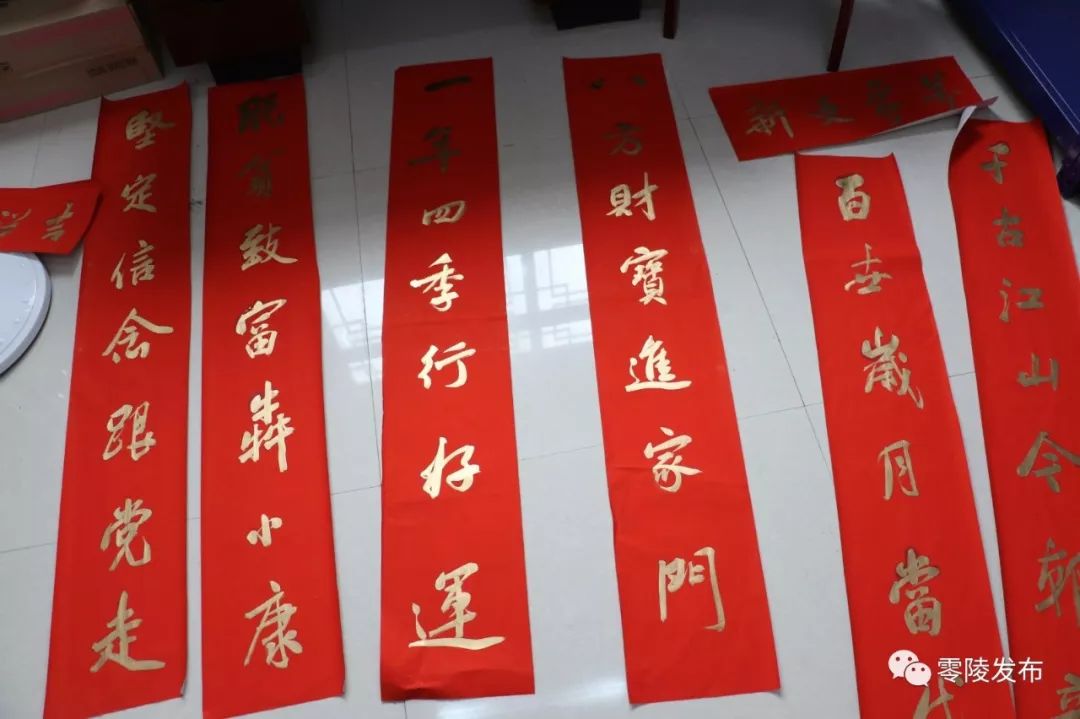 堅定信念跟党走
脱貧致富犇小康
一年四季行好運
八方財寶進家門
萬象更新
百世歲月當代
千古江山今朝
零陵发布